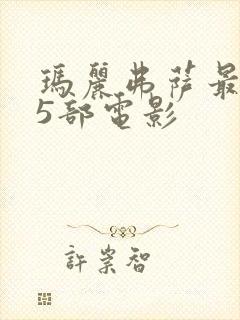 瑪麗弗薩最
5部電影
許崇智